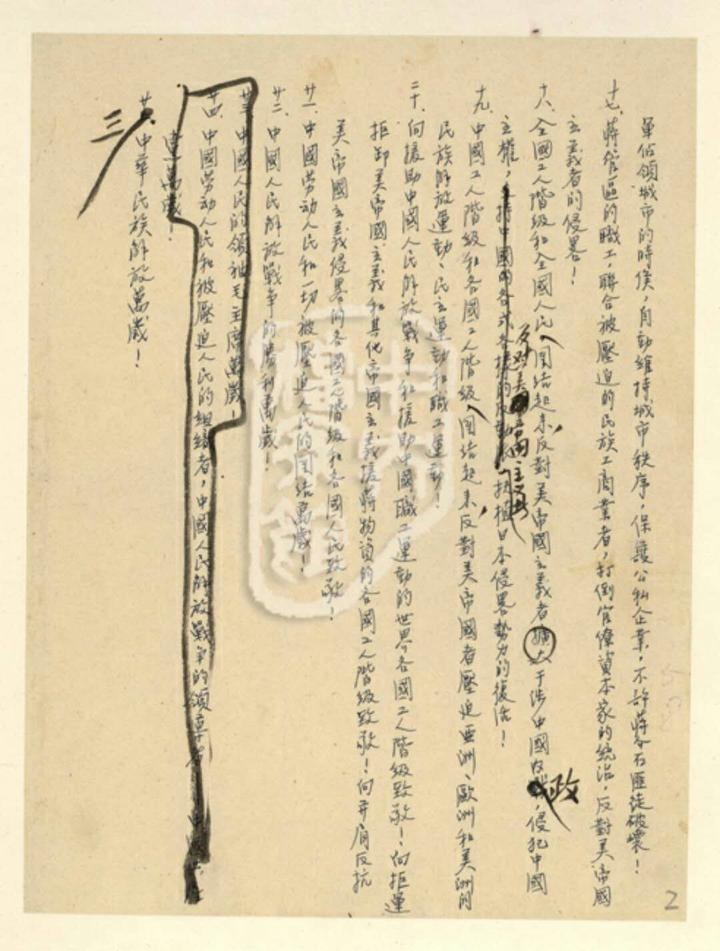 軍佔領城市的時候,自動維持城市秩序,保護公私企業,不許蔣介石匪徒破壞!
十七、蔣管區的職工,聯合被壓迫的民族工商業者,打倒官僚資本家的統治,反對美帝國
主義者的侵畧!
十八、全國工人階級和全國人民,團结起來,反對美帝國主義者擴大干涉中國內政,侵犯中國
主權,扶持中國的各式各樣的反動派,扶植日本侵畧勢力的復活!
反對美帝國主義
十九、中國工人階級和各國工人階級,團结起來,反對美帝國者壓迫亚洲、歐洲和美洲的
民族解放運動、民主運動和職工運動!
二十、向援助中國人民解放戰争和援助中國職工運動的世界各國工人階級致敬!向拒運
拒卸美帝國主義和其他帝國主義援蔣物資的各國工人階級致敬!向并肩反抗
美帝國主義侵畧的各國工人階級和各國人民致敬!
廿一、中國劳动人民和一切被壓迫人民的团结萬歲!
廿二、中國人民解放戰争的勝利萬歲!
廿三、中國人民的領袖毛主席萬歲!
廿四、中國劳动人民和被壓迫人民的組織者,中國人民解放戰争的領導者
萬歲!
廿、中華民族解放萬歲!
三
2